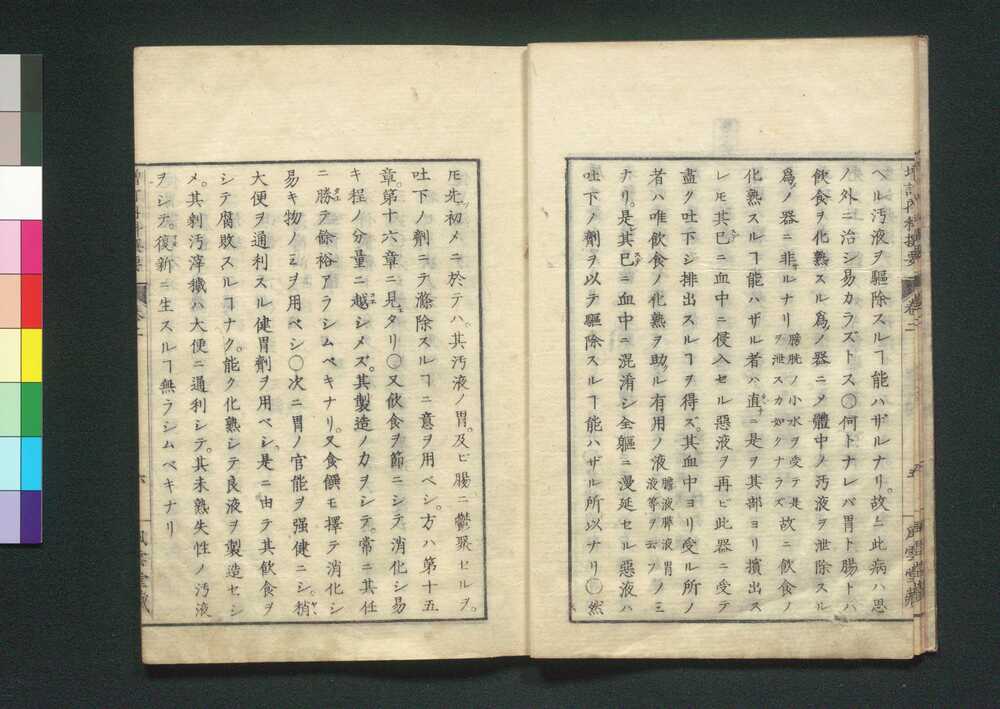 ヘル汚液ヲ驅除スルヿ能ハザルナリ。故ニ此病ハ思
ノ外ニ治シ易カラズトス〇何トナレバ胃ト腸トハ
飲食ヲ化熟スル爲ノ器ニメ體中ノ汚液ヲ泄除スル
爲ノ器ニ非ルナリ膀胱ノ小水ヲ受テ是ヲ泄スカ如クナラズ故ニ飲食ノ
化熟スルヿ能ハザル者ハ直ニ是ヲ其部ヨリ擯出ス
レモ其已ニ血中ニ侵入セル惡液ヲ再ビ此器ニ受テ
盡ク吐下シ排出スルヿヲ得ズ。其血中ヨリ受ル所ノ
者ハ唯飲食ノ化熟ヲ助ル有用ノ液膽液膵液胃液等ヲ云フノミ
ナリ。是其已ニ血中ニ混淆シ全軀ニ漫延セル惡液ハ
吐下ノ劑ヲ以テ驅除スルヿ能ハザル所以ナリ〇然
𪜈先初メニ於テハ。其汚液ノ胃。及ビ腸ニ鬱聚セルヲ。
吐下ノ劑ニテ滌除スルヿニ意ヲ用ベシ。方ハ第十五
章。第十六章ニ見タリ〇又飲食ヲ節ニシテ消化シ易
キ程ノ分量ニ越シメズ。其製造ノ力ヲシテ。常ニ其任
ニ勝テ餘裕アラシムベキナリ。又食饌モ擇テ消化シ
易キ物ノミヲ用ベシ〇次ニ胃ノ官能ヲ强健ニシ。稍
大便ヲ通利スル健胃劑ヲ用ベシ。是ニ由テ其飲食ヲ
シテ腐敗スルヿナク。能ク化熟シテ良液ヲ製造セシ
メ。其剩汚滓穢ハ大便ニ通利シテ。其未熟失性ノ汚液
ヲシテ。復新ニ生スルヿ無ラシムベキナリ